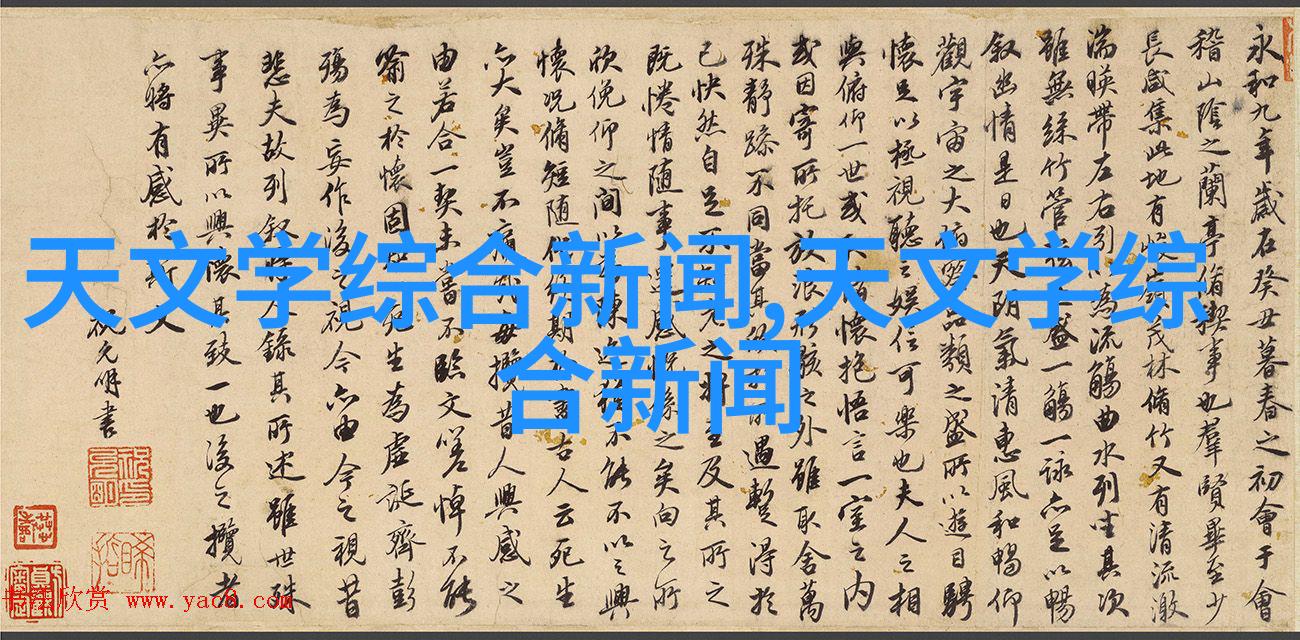 永和九年歲在癸丑暮春之初會于會
稽山陰之蘭亭脩禊事也羣賢畢至少
長咸集此地有茂林脩竹又有清流激
湍暎帶左右引為流觴曲水列坐其次
雖無絲竹管盛一觴一詠亦足以暢
叙幽情是日也天朗氣清惠風和暢仰
觀宇宙之大品類之盛所以遊目騁
懷足以極視聽之娛信可樂也夫人之相
與俯仰一世或懷抱悟言一室之內
或因寄所托放浪形骸之外雖取舍萬
殊靜躁不同當其所遇暫得於
已快然自足不老之將至及其所之
既惓情隨事遷感係之矣向之所
欣俛仰之間以陳迹不能不以之興
懷況脩短隨期古人云死生
亦大矣豈不痛每攬昔人興感之
由若合一契未嘗不臨文嗟悼不能
喻之於懷固死生為虛誕齊彭
殤為妄作後之視今亦由今之視昔
悲夫故列叙錄其所述雖世殊
事異所以興懷其致一也後之攬者
亦將有感於文
祝允明書
天文学综合新闻,天文学综
合新闻
书法欣赏 www.yac8.com